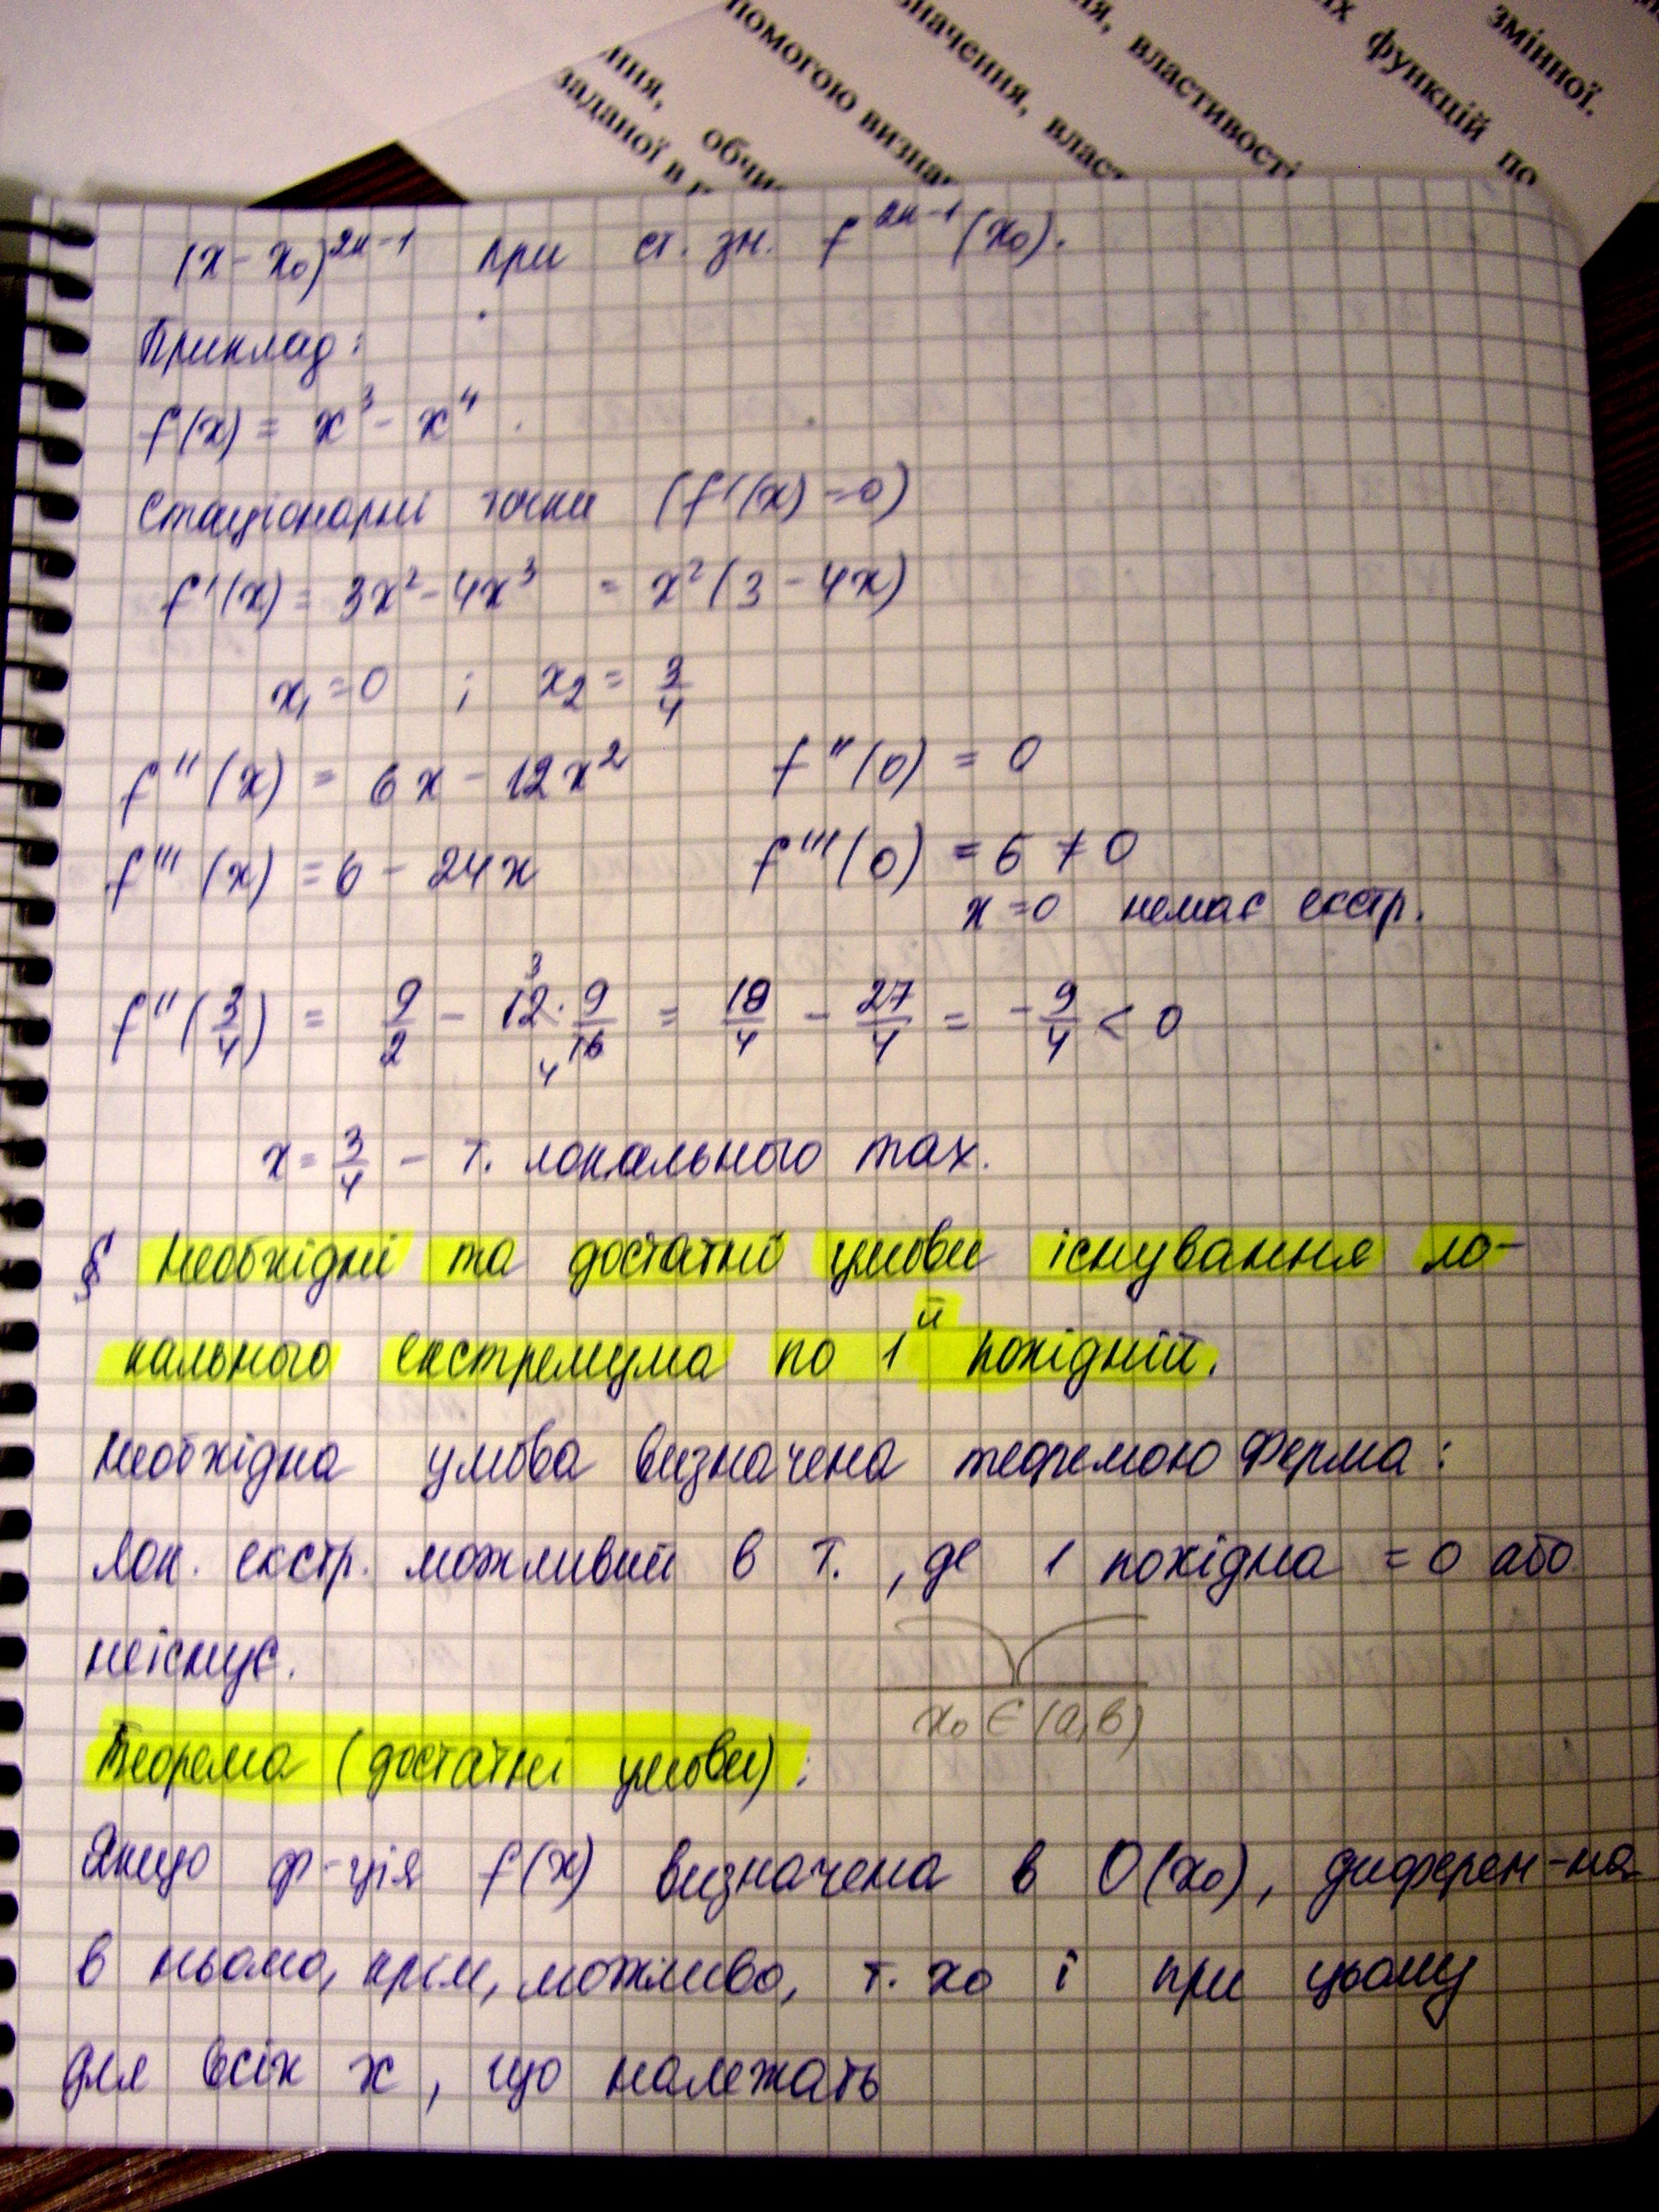 змінної.
них функцій по
ня, властивості
значення, власт
помогою визна
ння, обчи
заданої в
(x - x₀)²ⁿ⁻¹ при ст. зн. f²ⁿ⁻¹(x₀).
Приклад:
f(x) = x³ - x⁴
Стаціонарні точки (f'(x) = 0)
f'(x) = 3x² - 4x³ = x²(3 - 4x)
x₁ = 0 ; x₂ = 3/4
f''(x) = 6x - 12x² f''(0) = 0
f'''(x) = 6 - 24x f'''(0) = 6 ≠ 0
x = 0 немає екстр.
f''(3/4) = 9/2 - 12·9/16 = 18/4 - 27/4 = -9/4 < 0
3
4
x = 3/4 - т. локального max.
§ Необхідні та достатні умови існування ло-
кального екстремума по 1й похідній.
Необхідна умова визначена теоремою Ферма:
Лок. екстр. можливий в т. , де 1 похідна = 0 або
неіснує.
x₀ ∈ (a, b)
Теорема (достатні умови):
Якщо ф-ція f(x) визначена в O(x₀), диферен-на
в ньому, крім, можливо, т. x₀ і при цьому
для всіх x , що належать